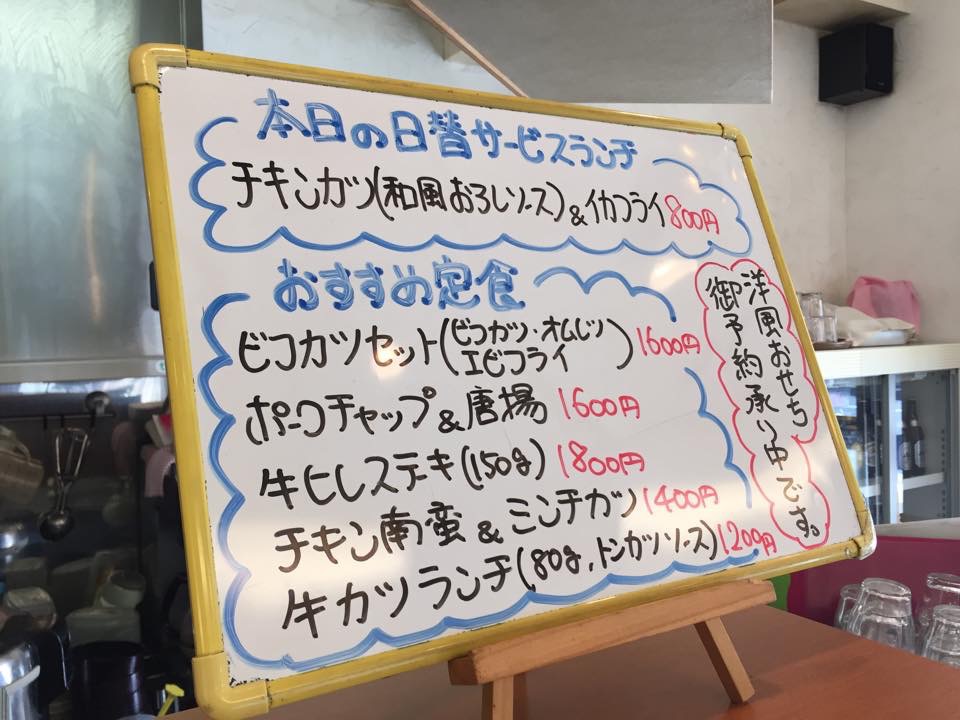 本日の日替サービスランチ
チキンカツ(和風おろしソース)&イカフライ800円
おすすめ定食
ビフカツセット(ビフカツ・オムレツ
エビフライ) 1600円
ポークチャップ&唐揚 1600円
牛ヒレステキ(150g) 1800円
チキン南蛮&ミンチカツ1400円
牛カツランチ(80g,トンカツソース)1200円
洋風おせち
御予約承り中です。